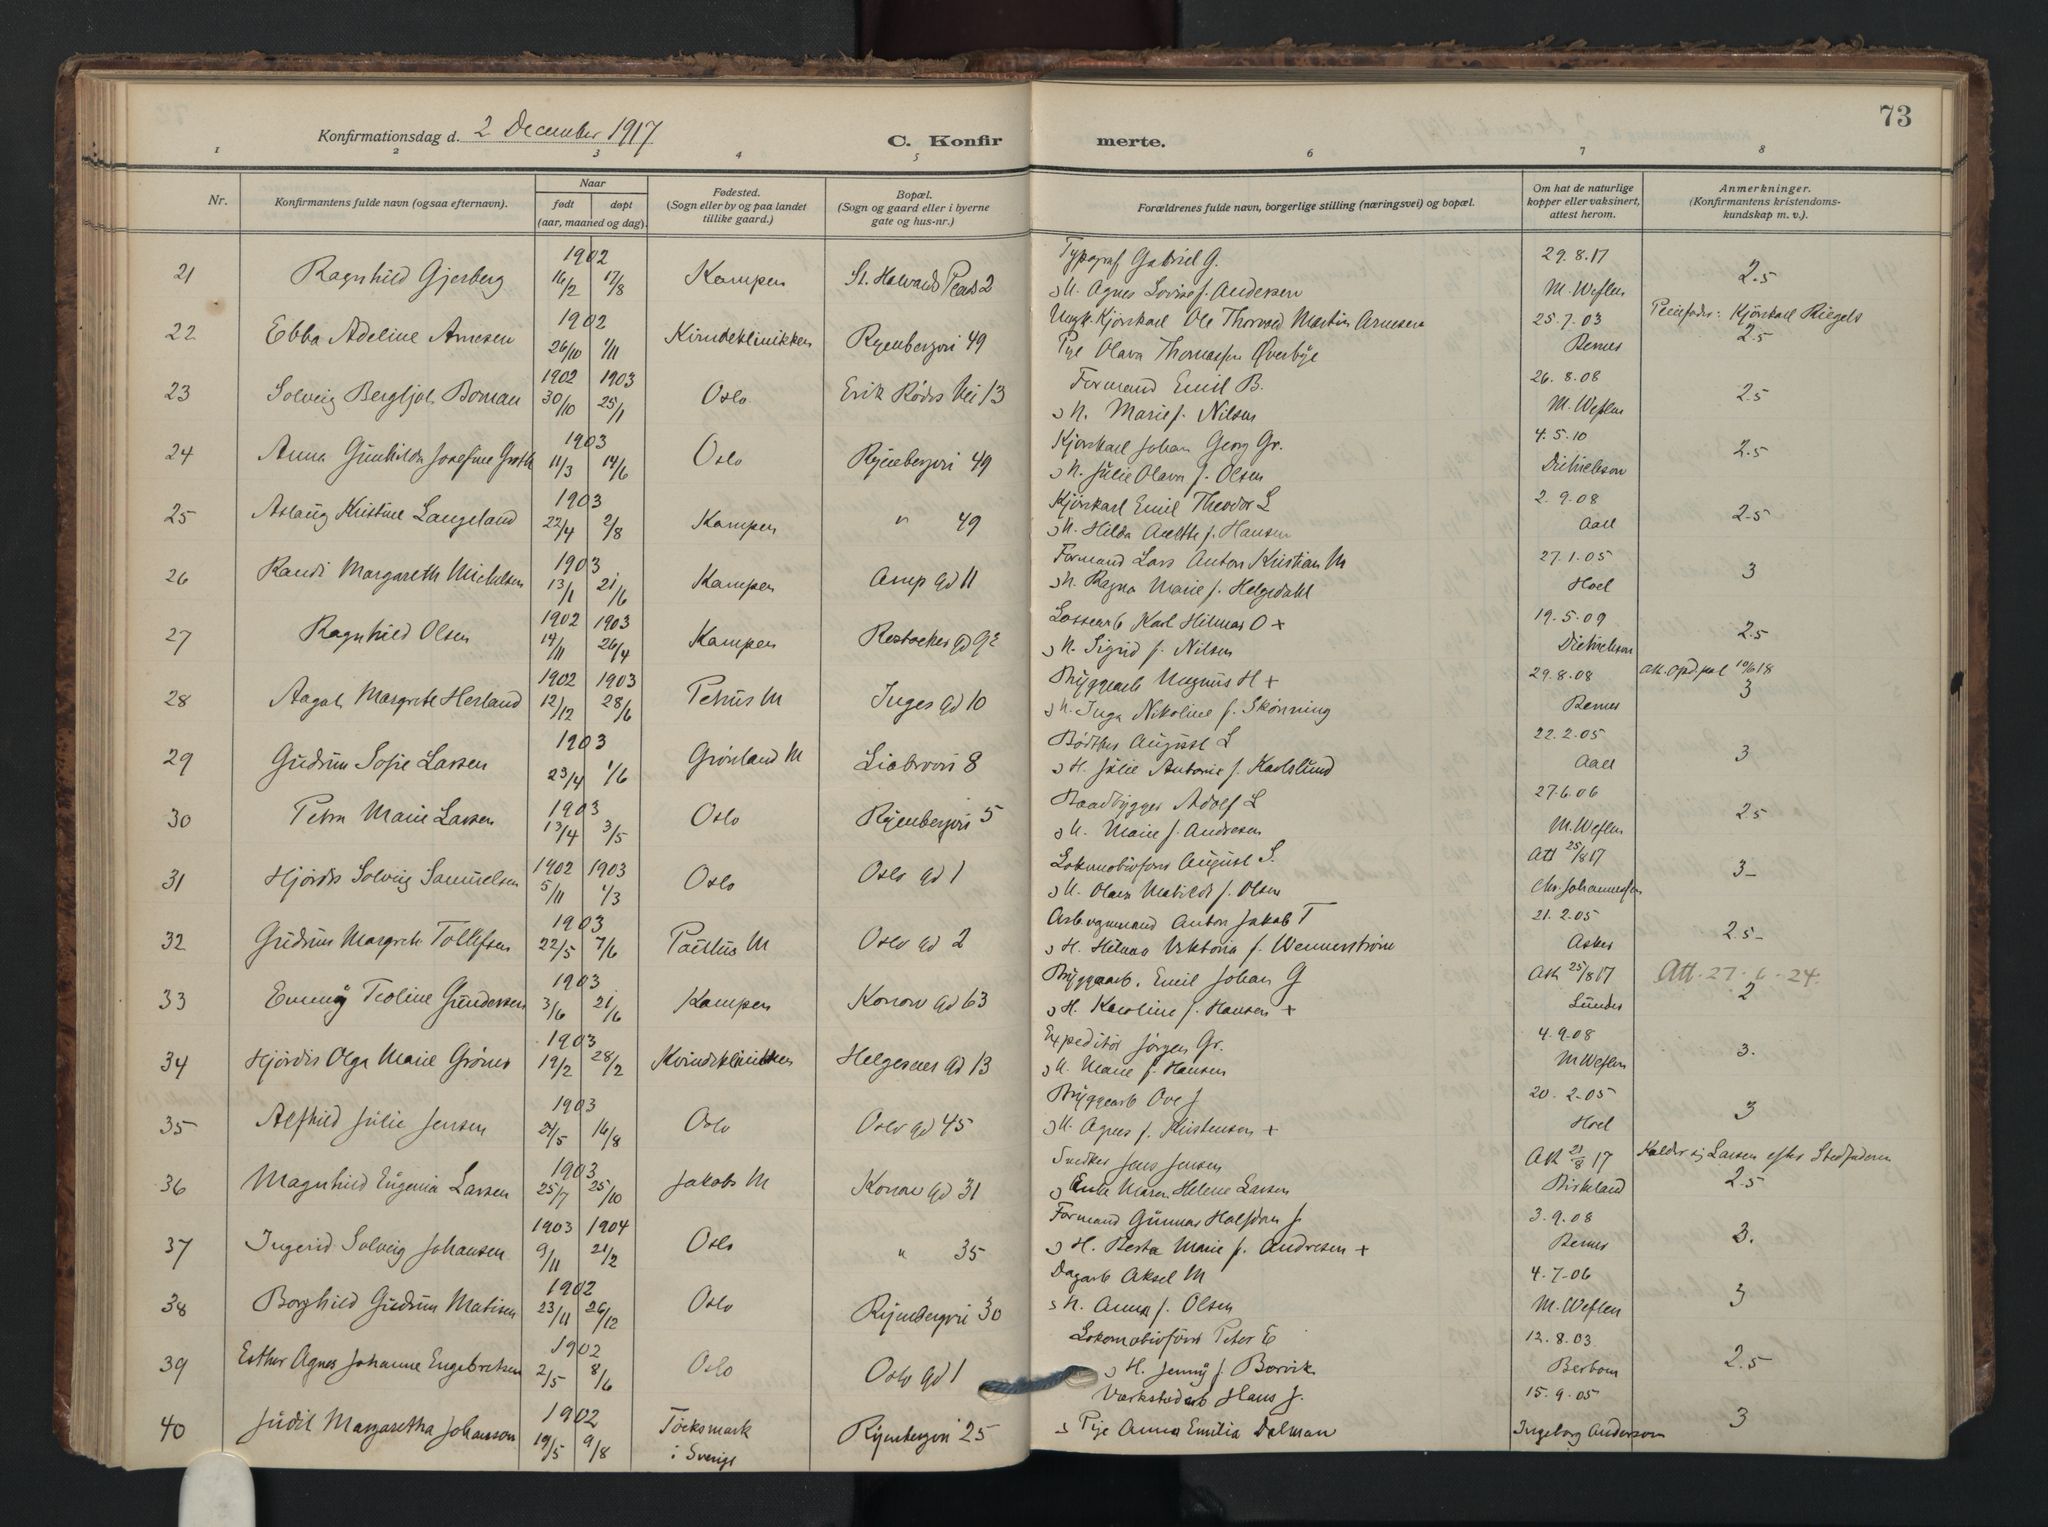 73
Konfirmationsdag d. 2 December 1917
C. Konfir merte.
1 2 3 4 5 6 7 8
Nr.
Konfirmantens fulde navn (ogsaa efternavn).
Naar
født døpt
(aar, maaned og dag).
Fødested.
(Sogn eller by og paa landet
tillike gaard.)
Bopæl.
(Sogn og gaard eller i byerne
gate og hus-nr.)
Forældrenes fulde navn, borgerlige stilling (næringsvei) og bopæl.
Om hat de naturlige
kopper eller vaksinert,
attest herom.
Anmerkninger.
(Konfirmantens kristendoms-
kundskap m. v.).
1902 Typograf Gabriel G. 29.8.17
21 Ragnhild Gjerberg 16/2 17/8 Kampen St. Halvards 2 2.5
Agnes Lovise f. Andersen M. Weflen
1902 Ungk. Kjørekarl Ole Thorvald Martin Arnesen 25.7.03 Kjørekarl
22 Ebba Adeline Arnesen 26/10 1/11 Kvindeklinikken Ryenbergvei 49 2.5
Pige Olava Thomassen Øverbye Berner
1902 1903 Formand Emil B. 26.8.08
23 Solveig Bergljot Boman 30/10 25/1 Oslo Erik Rødes Vei 13 2.5
Marie f. Nilsen M. Weflen
1903 Kjørekarl Johan Georg Gr. 4.5.10
24 Anna Gunhilda Josefine Groth 11/3 14/6 Oslo Ryenbergvei 49 2.5
Julie Olava f. Olsen Dietrichson
1903 Kjørekarl Emil Theodor L 2.9.08
25 Aslaug Kristine Langeland 22/4 2/8 Kampen " 49 2.5
Hilda f. Hansen Aall
1903 Formand Lars Anton Kristian M 27.1.05
26 Randi Margareth Michelsen 13/1 21/6 Kampen Amp gd 11 3
Ragna Marie f. Helgedahl Hoel
1902 1903 Lossearb Karl Hilmar O + 19.5.09
27 Ragnhild Olsen 14/11 26/4 Kampen 2.5
Sigrid f. Nilsen Dietrichson
1902 1903 Bryggearb Magnus H + 29.8.08 10/6 18
28 Aagot Margrete Herland 12/12 28/6 Petrus M Inges gd 10 3
Inga Nikoline f. Skønning Berner
1903 Bødker August L 22.2.05
29 Gudrun Sofie Larsen 23/4 1/6 Grønland M Liabrvei 8 3
H. Julie Antonie f. Karlslund Aall
1903 Baadbygger Adolf L 27.6.06
30 Petra Marie Larsen 13/4 3/5 Oslo Ryenbergvei 5 2.5
Marie f. Andresen M. Weflen
1902 1903 Lokomobilfører August S. Att 25/8 17
31 Hjørdis Solveig Samuelsen 5/11 1/3 Oslo Oslo gd 1 3-
Matilde f. Olsen Chr. Johannessen
1903 Anton Jakob T 21.2.05
32 Gudrun Margrete Tollefsen 22/5 7/6 Paulus M Oslo gd 2 2.5-
H. Helma Viktoria f. Wennerstrøm Asker
1903 Bryggearb. Emil Johan G Att 25/8 17 Att. 27-6-24.
33 Emmy Teoline Gundersen 3/6 21/6 Kampen Konow gd 63 2
H. Karoline f. Hansen + Lunder
1903 Expeditør Jørgen Gr. 4.9.08
34 Hjørdis Olga Marie 19/2 28/2 Kvindeklinikken Helgesens gd 13 3.
Marie f. Hansen M Weflen
1903 Bryggearb Ove J 20.2.05
35 Alfhild Julie Jensen 24/5 16/8 Oslo Oslo gd 45 3
Agnes f. Kristensen + Hoel
1903 Snedker Jens Jensen Att 21/8 17 Kalder sig Larsen efter Stedfaderen
36 Magnhild Eugenia Larsen 25/7 25/10 Jakobs M Konow gd 31 2.5
Enke Maren Helene Larsen Birkeland
1903 1904 Formand Gunnar Halfdan J. 3.9.08
37 Ingerid Solveig Johansen 9/11 21/2 Oslo " 35 3.
H. Berta Marie f. Andresen + Berner
1902 Dagarb Aksel M 4.7.06
38 Borghild Gudrun Matisen 23/11 26/12 Oslo Ryenbergvei 30 3
Anna f. Olsen M. Weflen
1902 Lokomobilfører Peter E 12.8.03
39 Esther Agnes Johanne Engebretsen 2/5 8/6 Oslo Oslo gd 1 2.5
H. Jenny f. Borvik Berbom
1902 Værkstedarb Hans J. 15.9.05
40 Judit Margaretha Johanson 19/5 9/8 Töcksmark Ryenbergvei 25 3
i Sverige Pige Anna Emilia Dalman Ingeborg Anderson